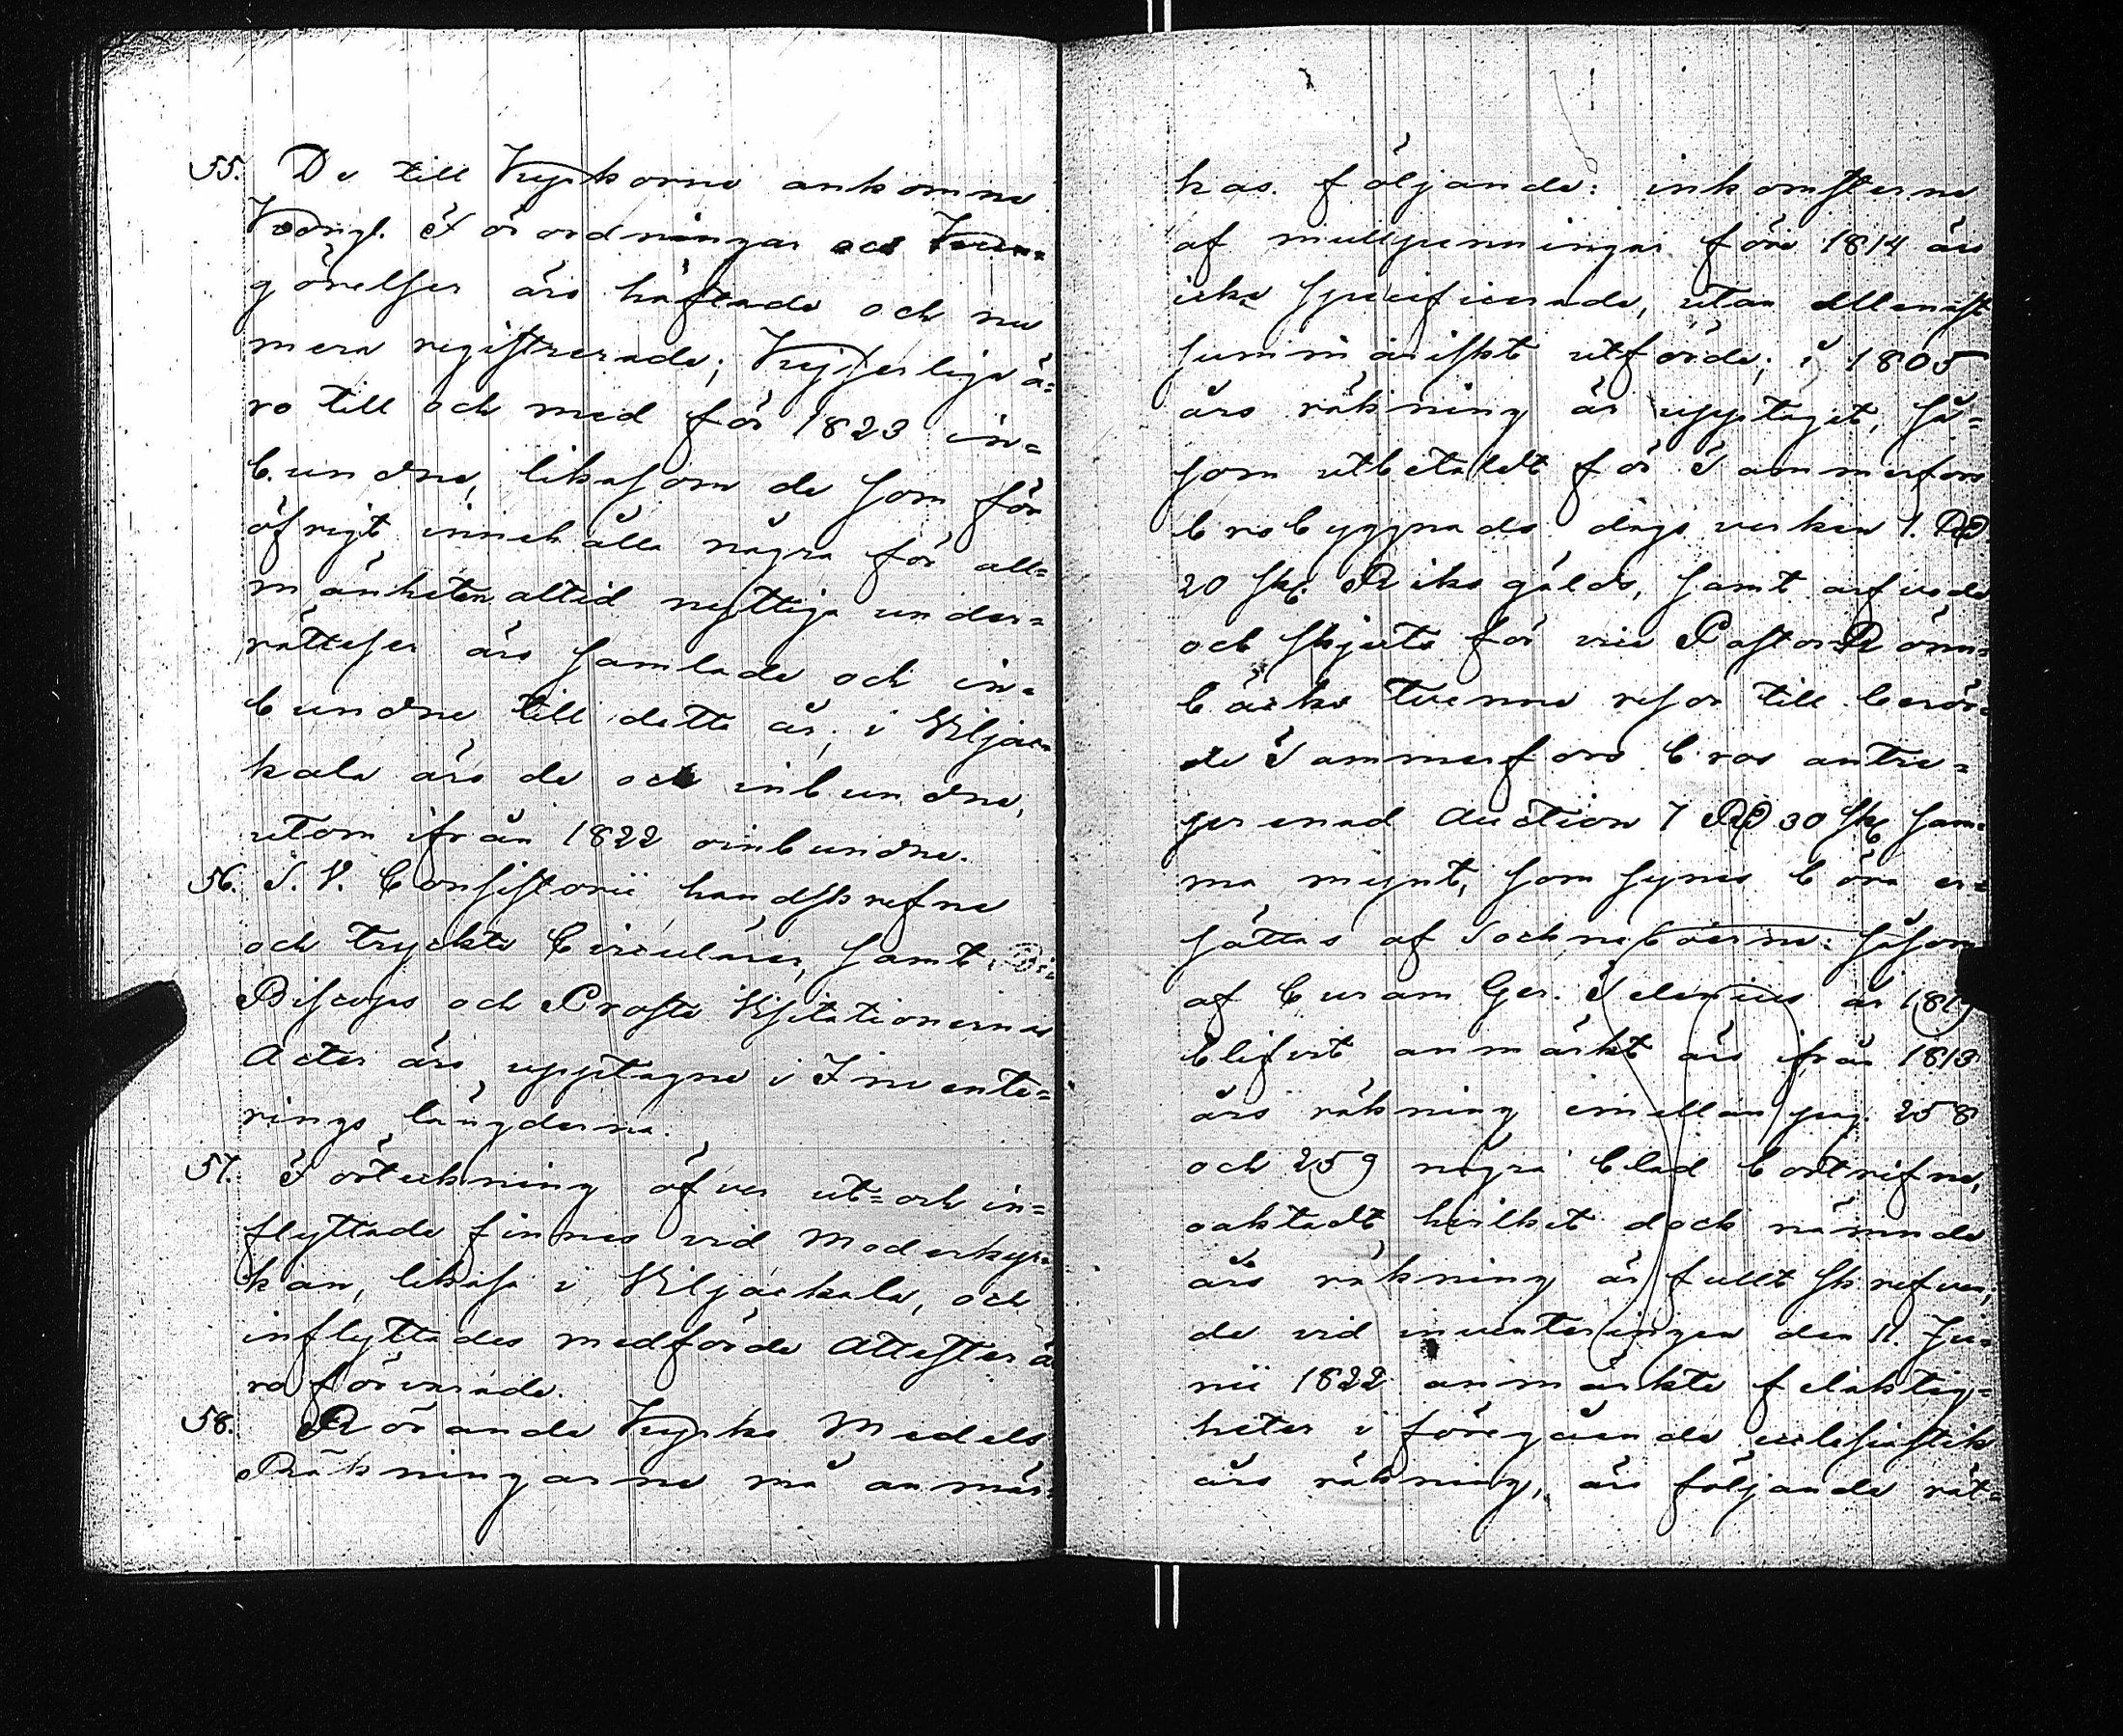 55. De till Kyrkorne ankomne
Kongl. Förordningar och Kun=
görelser äro häftade och nu
mera registrerade; Kejserliga ä=
ro till och med för 1823 in=
bundne, likasom de som för
öfrigt innehålla några för all=
mänheten altid nyttiga under=
rättelser äro samlade och in=
bundne till detta år; i Viljac=
kala äro de och inbundne,
utom ifrån 1822 oinbundne.
56. S. V. Consistorii handskrefne
och tryckte Circulärer, samt
Biscops och Prosts Visitationernas
Acter äro upptagne i Invente=
rings längderna.
57. Förtekning öfver ut= och in=
flyttade finnes vid Moderkyr=
kan, likaså i Viljackala, och
inflyttades medförde Attester ä
ro förvarade.
58. Rörande Kyrko Medels
Räkningarne må anmär=
kas följande: inkomsterne
af mullpenningar före 1814 äro
icke specificerade, utan allenast
summariskt utförde; i 1805
års räkning är upptaget, så=
som utbetaldt för Tammerfors
brobyggnads dagsverken 1. RD
20 sk. Riksgälds, samt arfvode
och skjuts för vice Pastor Rönn=
bäcks tvenne resor till berör=
de Tammerfors bros antre=
prenad Auction 7 RD 30 sk sam=
ma mynt, som synes böra er=
sättas af Sockneboerne: såsom
af Curam Ger. Selenius år 1819
blifvit anmärkt äro ifrån 1813
års räkning emellan pag. 258
och 259 några blad bortrifne,
oaktadt hvilket dock nämnde
års räkning är fullt skrefven;
de vid inventeringen den 11. Ju=
nii 1822 anmärkte felaktig=
heter i föregående ecclesiastik
års räkning, äro följande rät=